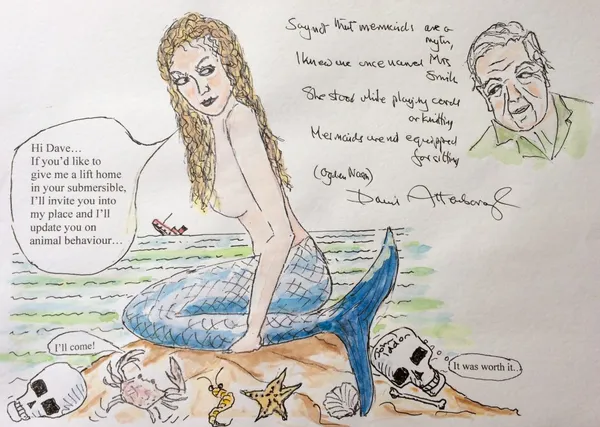 Say not that mermaids are a
myth,
I knew one once named Mrs
Smith
She stood while playing cards
or knitting
Mermaids are not equipped
for sitting
(Ogden Nash)
David Attenborough
Hi Dave...
If you'd like to
give me a lift home
in your submersible,
I'll invite you into
my place and I'll
update you on
animal behaviour...
I'll come!
It was worth it...